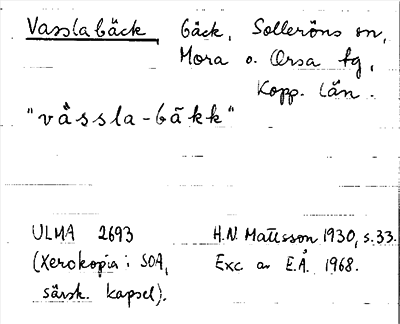 Vasslabäck, bäck, Solleröns sn,
Mora o. Orsa tg,
Kopp. län.
"våssla-bäkk"
ULMA 2693
(Xerokopia i SOA,
särsk. kapsel).
H.N. Matsson 1930, s. 33.
Exc av E.Å. 1968.